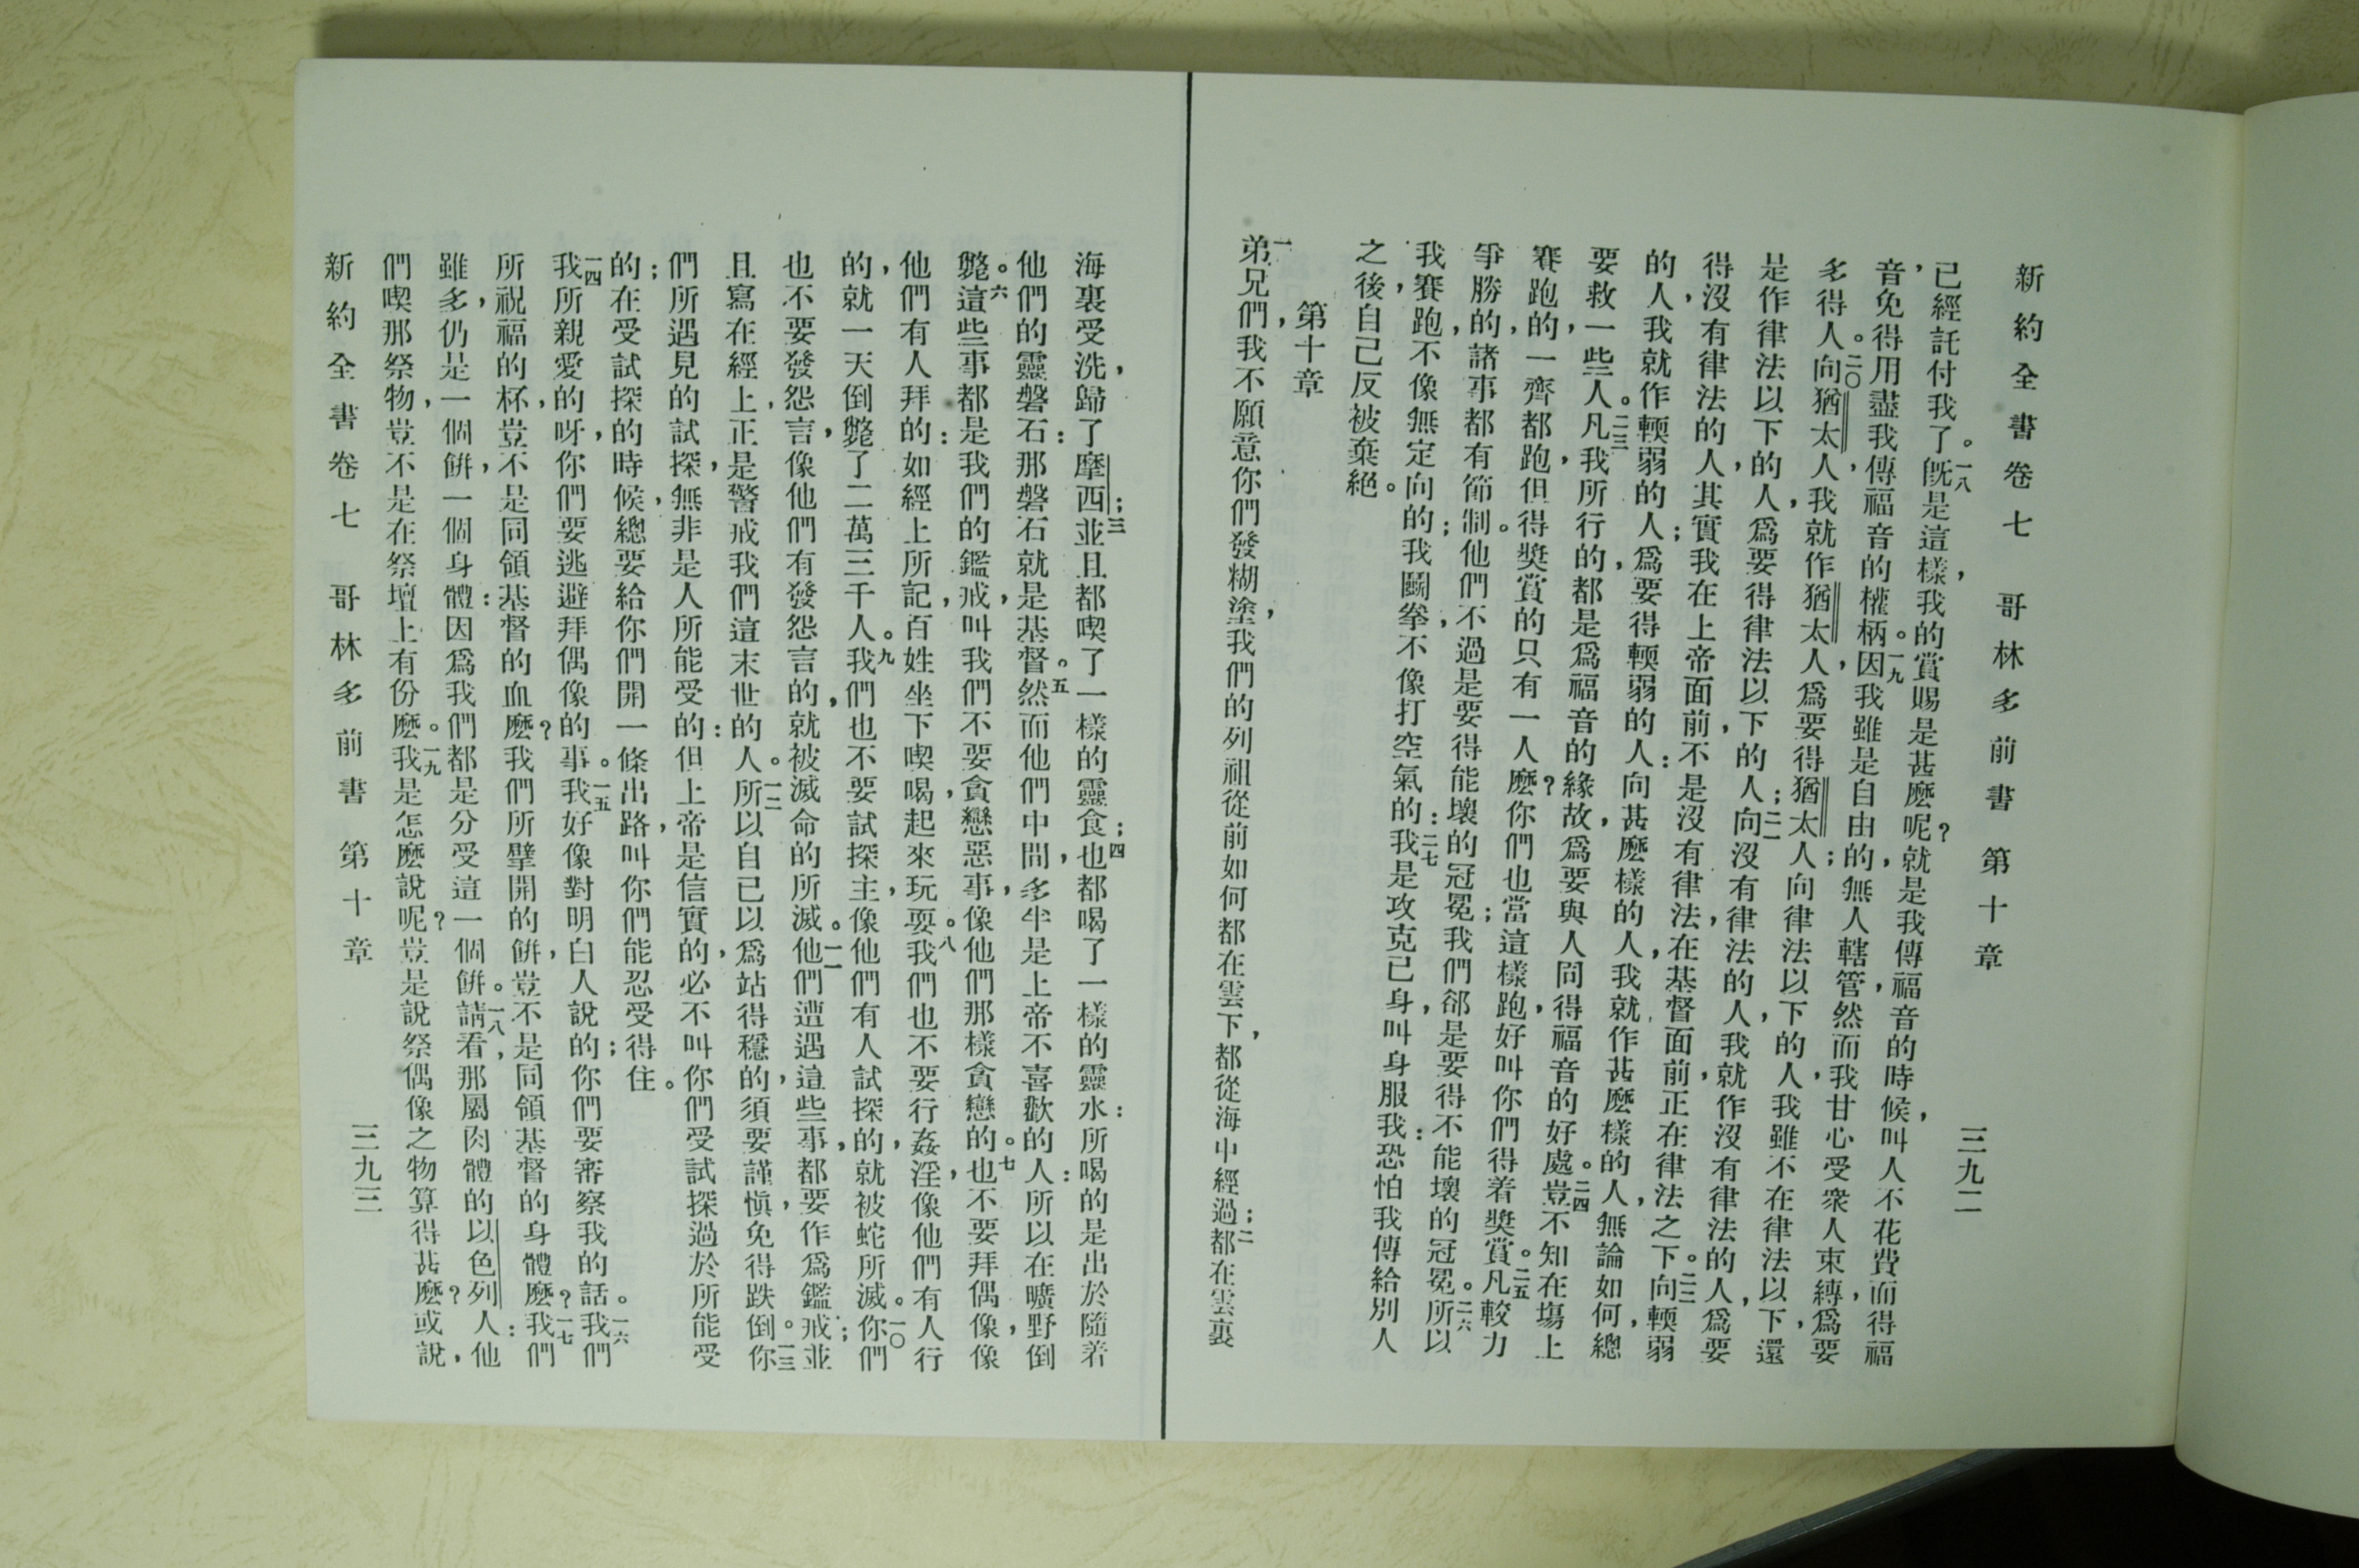 新約全書卷七　哥林多前書　第十章　三九二
已經託付我了。一八旣是這樣，我的賞賜是甚麼呢？就是我傳福音的時候，叫人不花費而得福
音，免得用盡我傳福音的權柄。一九因我雖是自由的，無人轄管，然而我甘心受衆人束縛，爲要
多得人。二〇向猶太人，我就作猶太人，爲要得猶太人；向律法以下的人，我雖不在律法以下，還
是作律法以下的人，爲要得律法以下的人；二一向沒有律法的人，我就作沒有律法的人，爲要
得沒有律法的人，其實我在上帝面前，不是沒有律法，在基督面前，正在律法之下。二二向輭弱
的人，我就作輭弱的人，爲要得輭弱的人：向甚麼樣的人，我就作甚麼樣的人，無論如何，總
要救一些人。二三凡我所行的，都是爲福音的緣故，爲要與人同得福音的好處。二四豈不知在塲上
賽跑的，一齊都跑，但得獎賞的只有一人麼？你們也當這樣跑，好叫你們得着獎賞。二五凡較力
爭勝的，諸事都有節制。他們不過是要得能壞的冠冕；我們郤是要得不能壞的冠冕。二六所以
我賽跑，不像無定向的；我鬬拳，不像打空氣的：二七我是攻克己身，叫身服我：恐怕我傳給別人
之後，自己反被棄絕。
第十章
一弟兄們，我不願意你們發糊塗，我們的列祖從前如何都在雲下，都從海中經過；二都在雲裏
海裏受洗，歸了摩西；三並且都喫了一樣的靈食；四也都喝了一樣的靈水：所喝的是出於隨着
他們的靈磐石：那磐石就是基督。五然而他們中間，多半是上帝不喜歡的人：所以在曠野倒
斃。六這些事都是我們的鑑戒，叫我們不要貪戀惡事，像他們那樣貪戀的。七也不要拜偶像，像
他們有人拜的：如經上所記，百姓坐下喫喝，起來玩耍。八我們也不要行姦淫，像他們有人行
的，就一天倒斃了二萬三千人。九我們也不要試探主，像他們有人試探的，就被蛇所滅。一〇你們
也不要發怨言，像他們有發怨言的，就被滅命的所滅。一一他們遭遇這些事，都要作爲鑑戒；並
且寫在經上，正是警戒我們這末世的人。一二所以自己以爲站得穩的，須要謹愼，免得跌倒。一三你
們所遇見的試探，無非是人所能受的：但上帝是信實的，必不叫你們受試探過於所能受
的；在受試探的時候，總要給你們開一條出路，叫你們能忍受得住。
一四我所親愛的呀，你們要逃避拜偶像的事。一五我好像對明白人說的；你們要審察我的話。一六我們
所祝福的杯，豈不是同領基督的血麼？我們所擘開的餅，豈不是同領基督的身體麼？一七我們
雖多，仍是一個餅，一個身體：因爲我們都是分受這一個餅。一八請看那屬肉體的以色列人：他
們喫那祭物，豈不是在祭壇上有份麼。一九我是怎麼說呢？豈是說祭偶像之物算得甚麼？或說，
新約全書卷七　哥林多前書　第十章　三九三